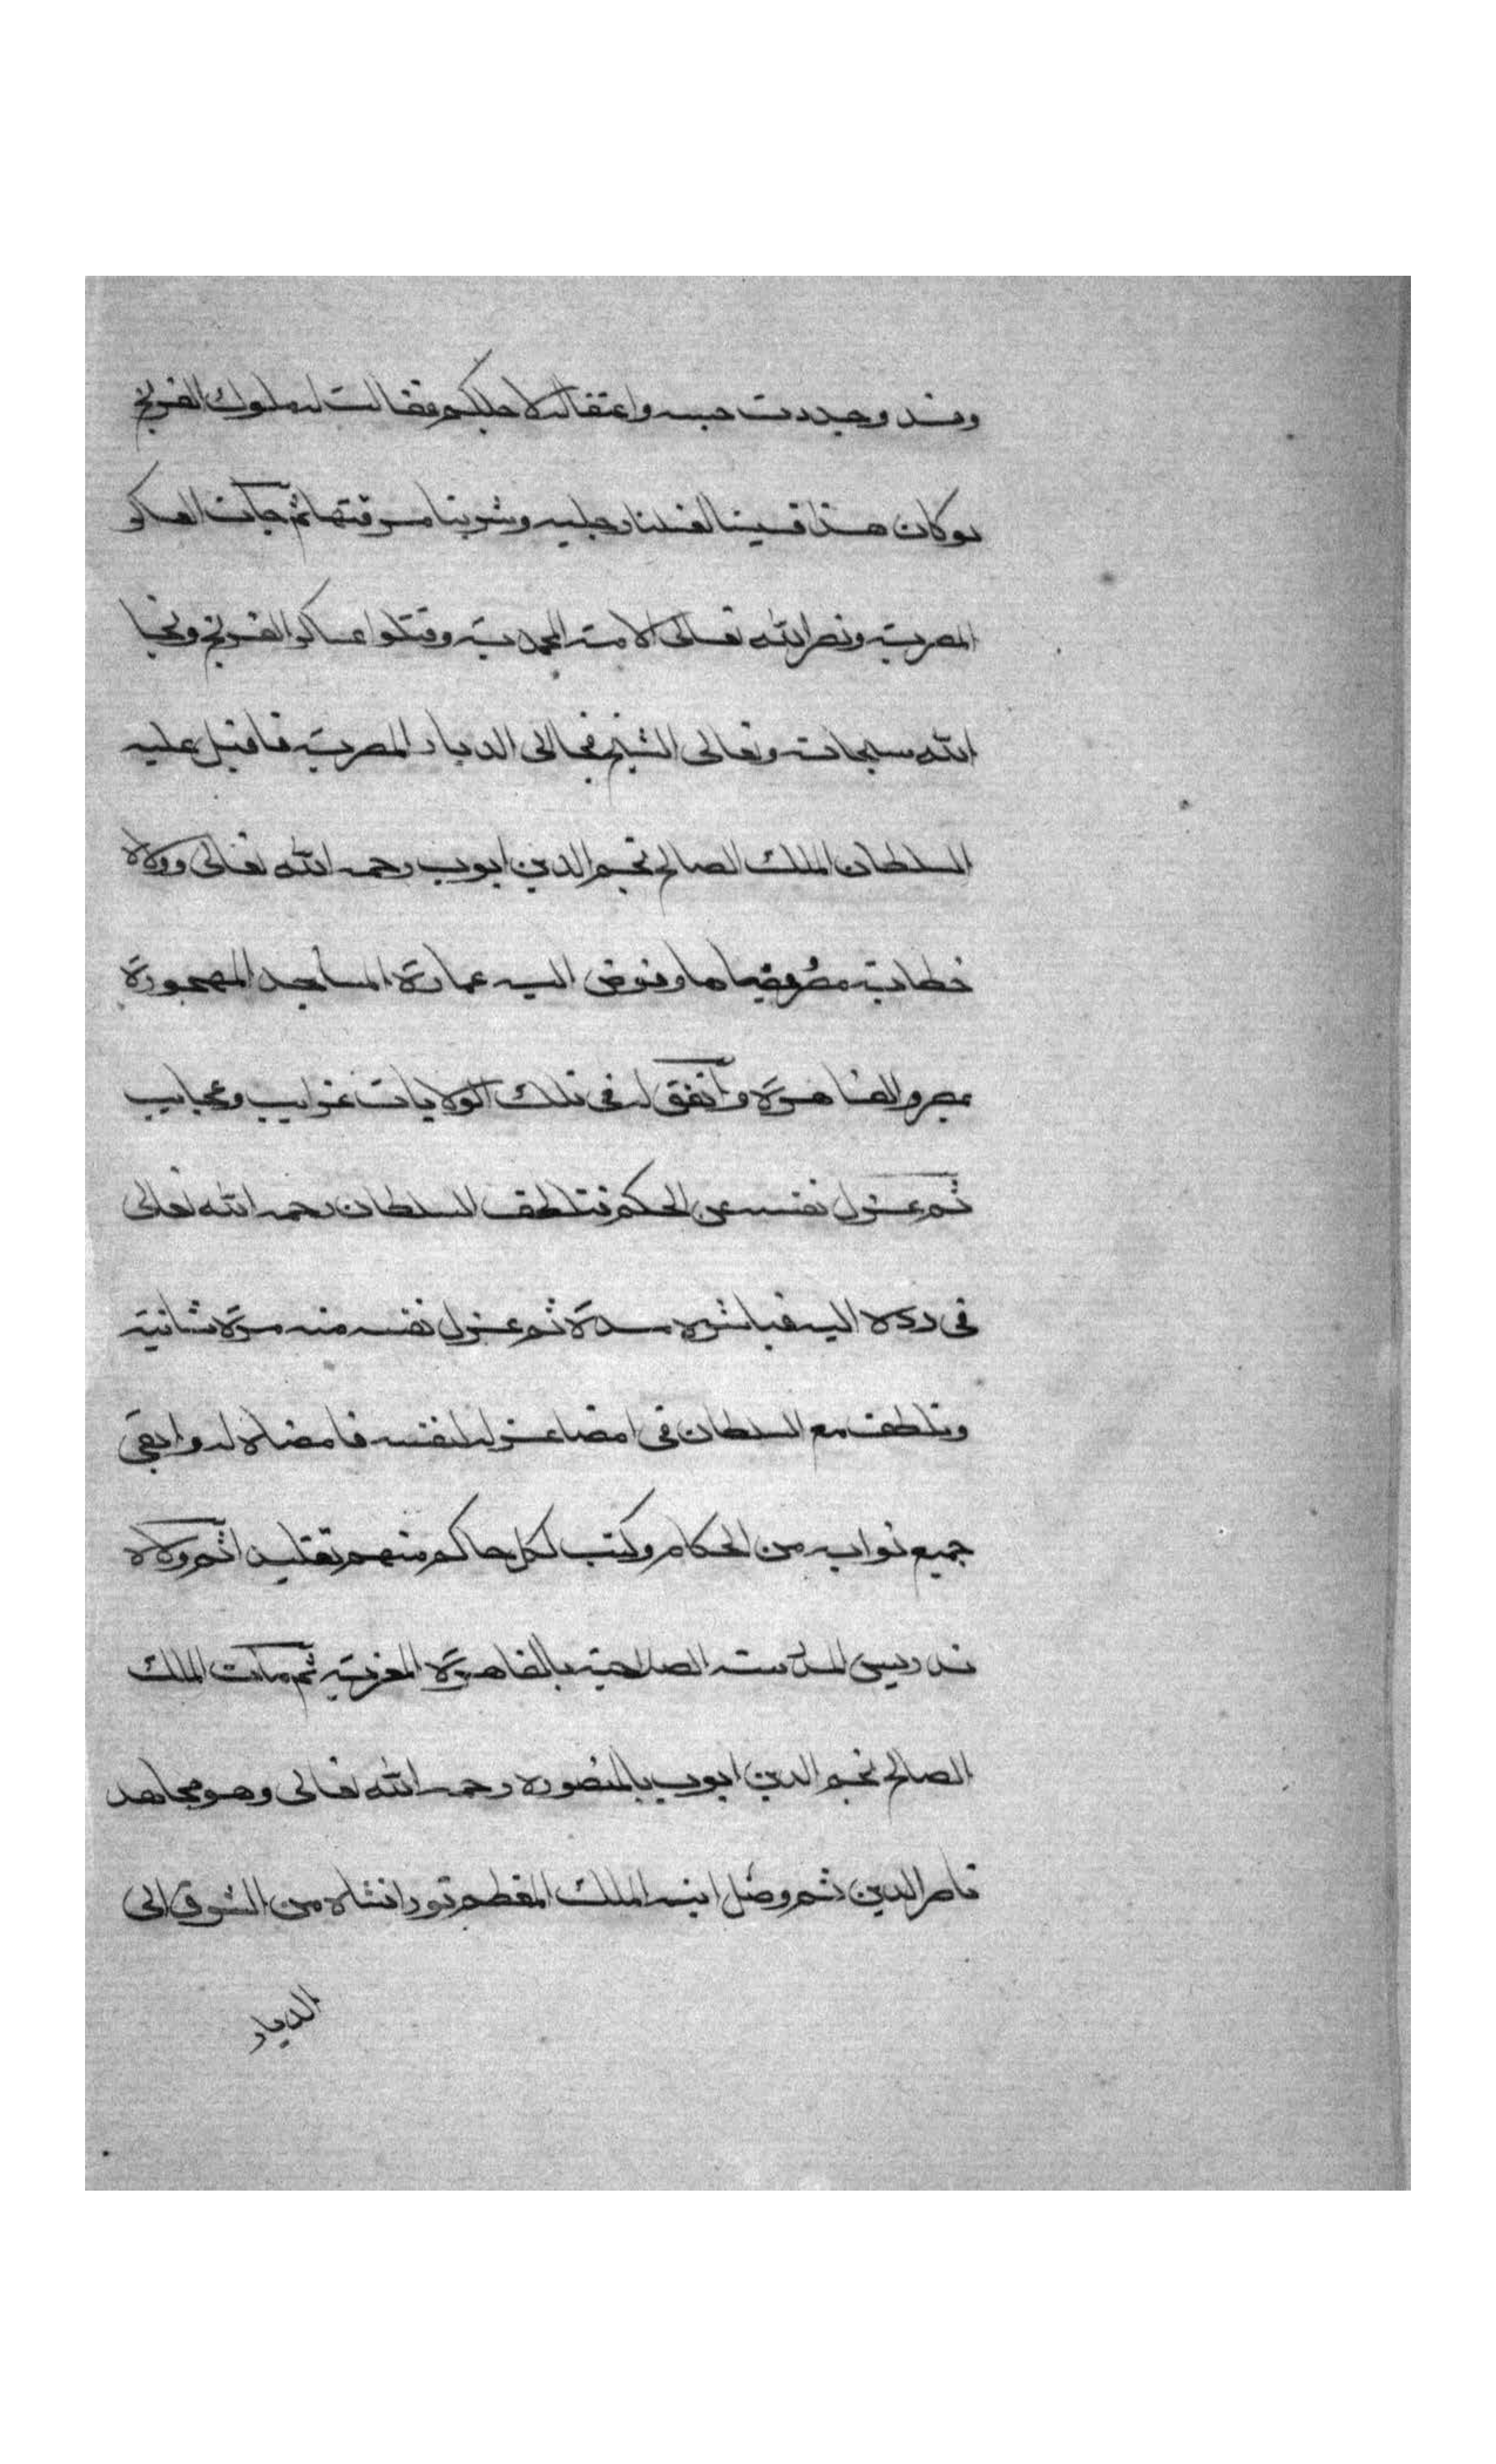 وقد وجددت حبسه واعتقاله لاجلكم فقالت له ملوك الفرنج
لو كان هذا قسيسنا لغسلنا رجليه وشربنا مرقتها ثم جآت العساكر
المصرية ونصر الله تعالى الامة المحمدية وقتلوا عساكر الفرنج ونجا
الله سبحانه وتعالى الشيخ فجا الى الديار المصرية فاقبل عليه
السلطان الملك الصالح نجم الدين ايوب رحمه الله تعالى وولاه
خطابة مصر وقضاها وفوض اليه عمارة المساجد المهجورة
بمصر والقاهرة واتفق له في تلك الولايات غرايب وعجايب
ثم عزل نفسه عن الحكم فتلطف السلطان رحمه الله تعالى
في رده اليه فباشره مدة ثم عزل نفسه منه مرة ثانية
وتلطف مع السلطان في امضا عزله لنفسه فامضاه له وابقى
جميع نوابه من الحكام وكتب لكل حاكم منهم تقليدا ثم ولاه
تدريس المدرسة الصلاحية بالقاهرة المعزية ثم مات الملك
الصالح نجم الدين ايوب بالمنصوره رحمه الله تعالى وهو مجاهد
ناصر الدين ثم وصل ابنه الملك المعظم تورانشاه من الشرق الى
الديار